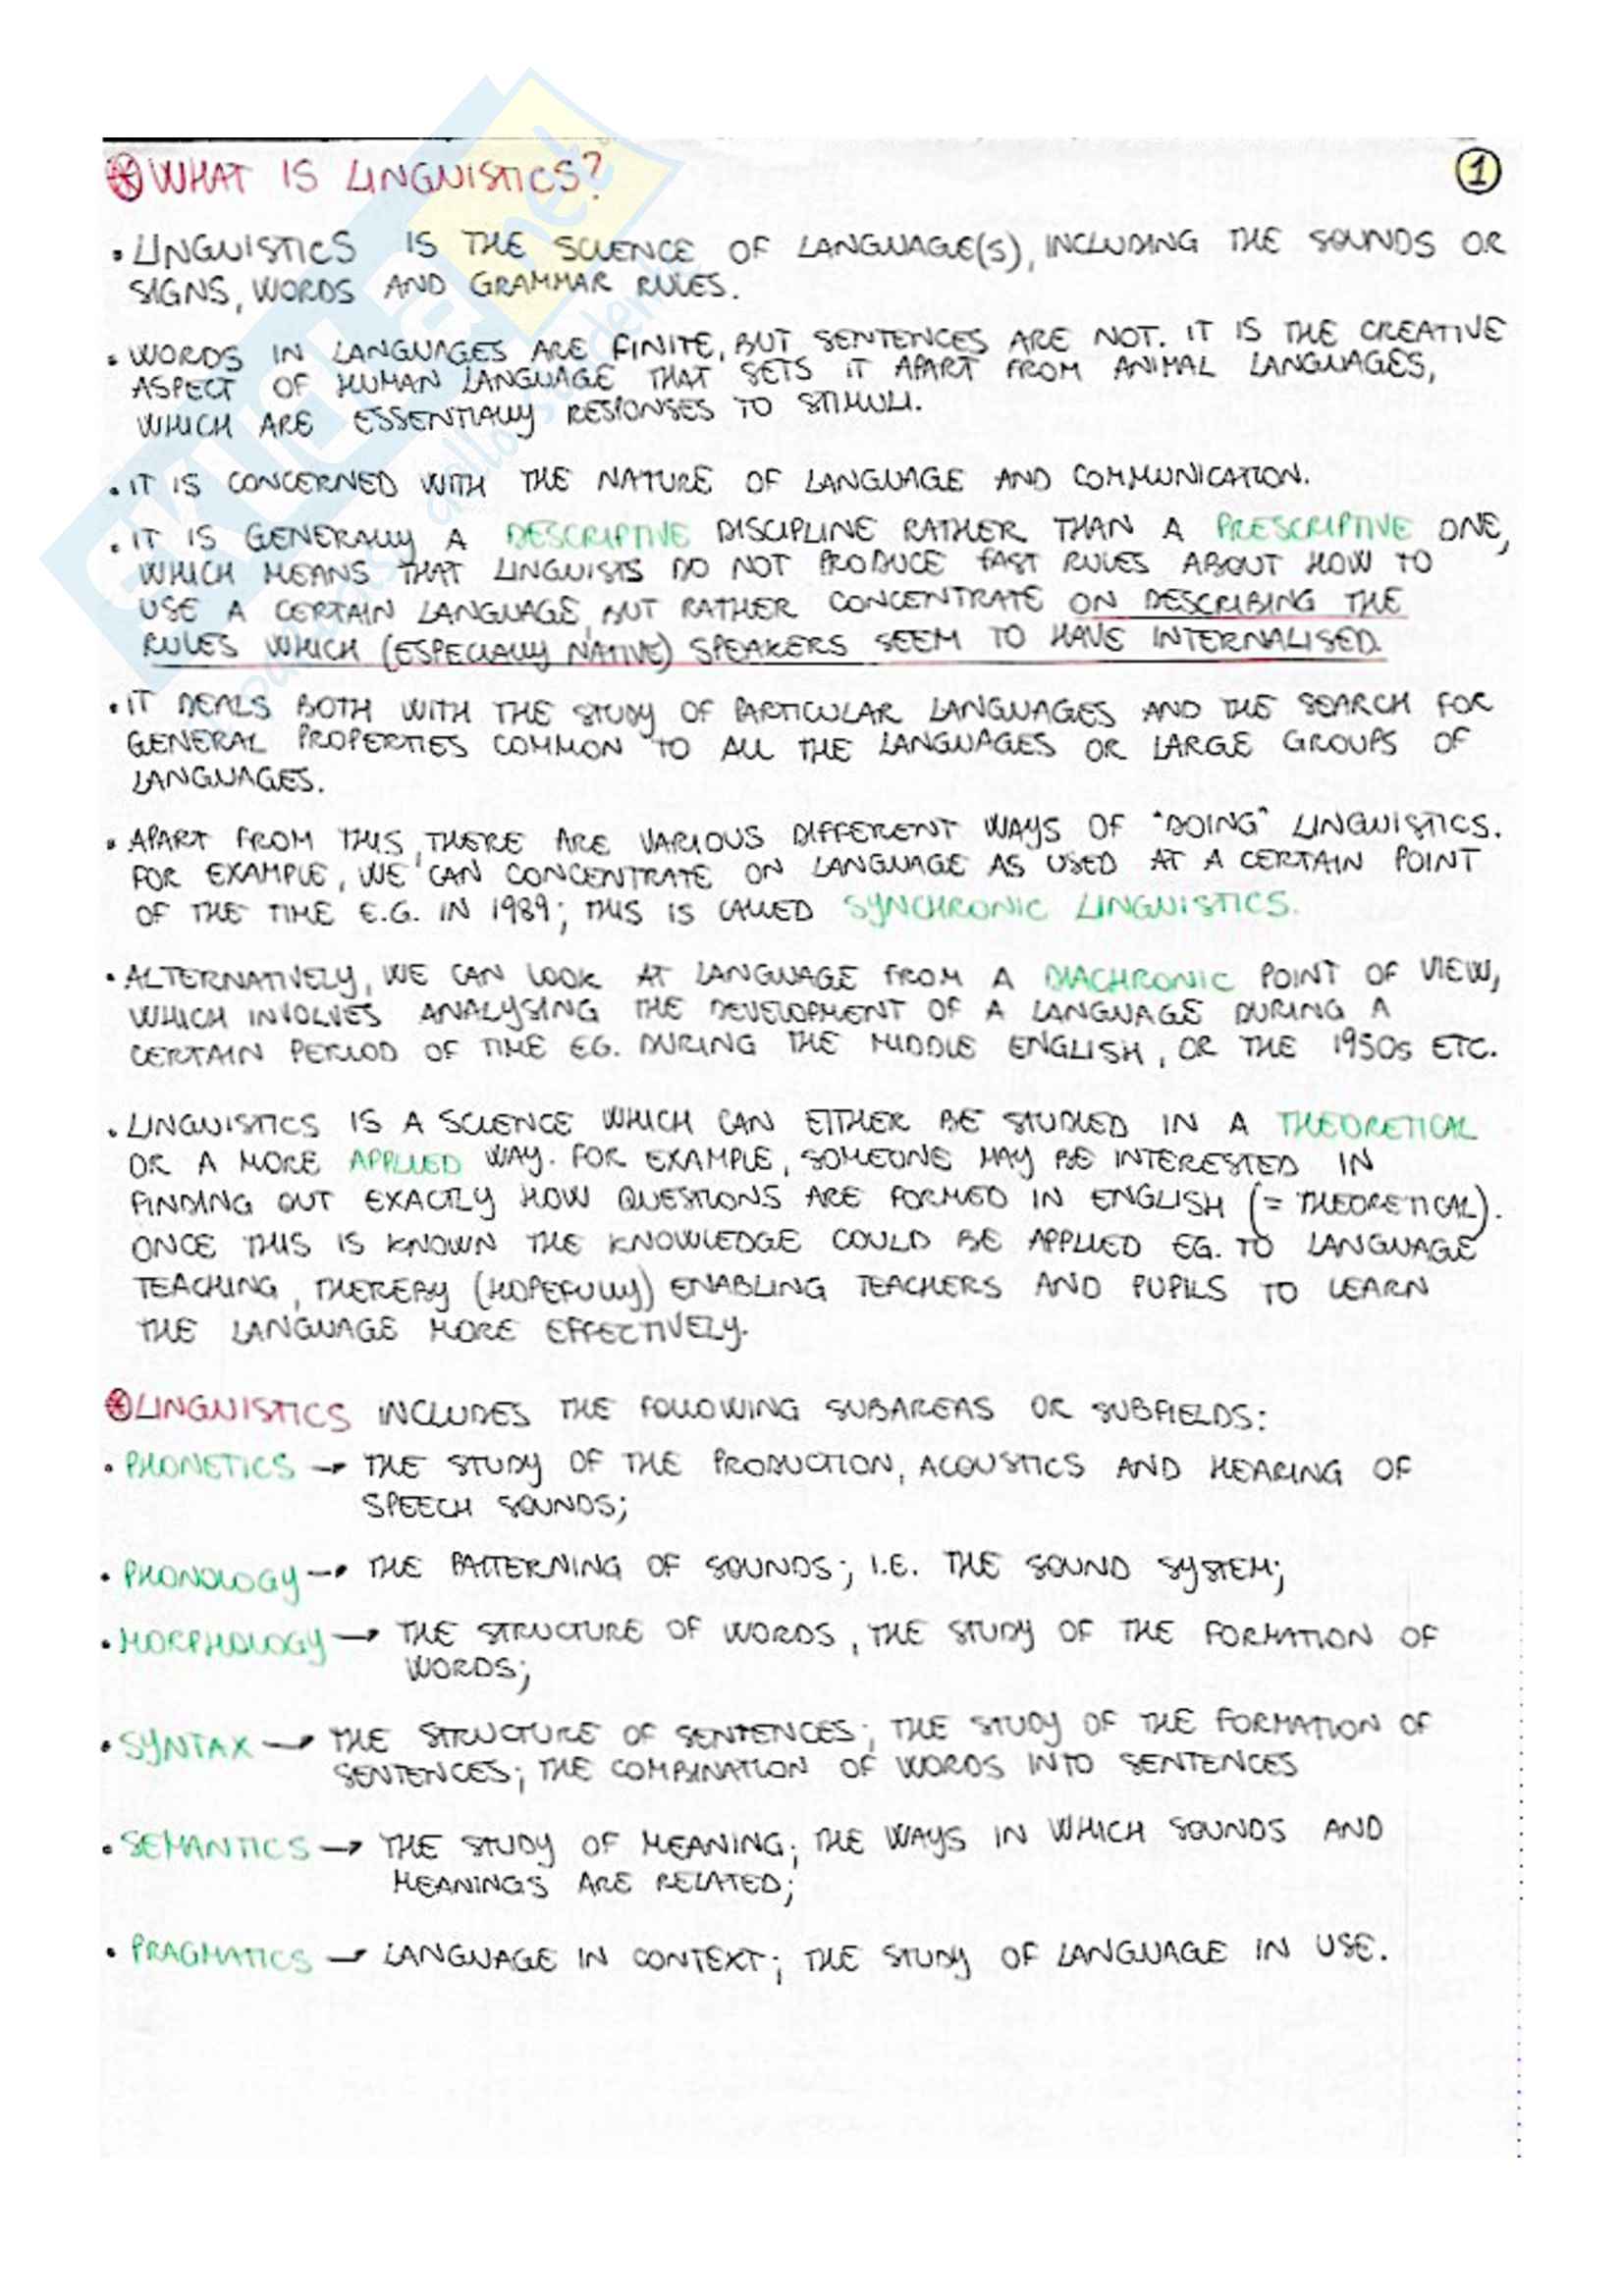 WHAT IS LINGUISTICS?
1
• LINGUISTICS IS THE SCIENCE OF LANGUAGE(S), INCLUDING THE SOUNDS OR
SIGNS, WORDS AND GRAMMAR RULES.
• WORDS IN LANGUAGES ARE FINITE, BUT SENTENCES ARE NOT. IT IS THE CREATIVE
ASPECT OF HUMAN LANGUAGE THAT SETS IT APART FROM ANIMAL LANGUAGES,
WHICH ARE ESSENTIALLY RESPONSES TO STIMULI.
• IT IS CONCERNED WITH THE NATURE OF LANGUAGE AND COMMUNICATION.
• IT IS GENERALLY A DESCRIPTIVE DISCIPLINE RATHER THAN A PRESCRIPTIVE ONE,
WHICH MEANS THAT LINGUISTS DO NOT PRODUCE FAST RULES ABOUT HOW TO
USE A CERTAIN LANGUAGE, BUT RATHER CONCENTRATE ON DESCRIBING THE
RULES WHICH (ESPECIALLY NATIVE) SPEAKERS SEEM TO HAVE INTERNALISED.
• IT DEALS BOTH WITH THE STUDY OF PARTICULAR LANGUAGES AND THE SEARCH FOR
GENERAL PROPERTIES COMMON TO ALL THE LANGUAGES OR LARGE GROUPS OF
LANGUAGES.
• APART FROM THIS, THERE ARE VARIOUS DIFFERENT WAYS OF "DOING" LINGUISTICS.
FOR EXAMPLE, WE CAN CONCENTRATE ON LANGUAGE AS USED AT A CERTAIN POINT
OF THE TIME E.G. IN 1989; THIS IS CALLED SYNCHRONIC LINGUISTICS.
• ALTERNATIVELY, WE CAN LOOK AT LANGUAGE FROM A DIACHRONIC POINT OF VIEW,
WHICH INVOLVES ANALYSING THE DEVELOPMENT OF A LANGUAGE DURING A
CERTAIN PERIOD OF TIME EG. DURING THE MIDDLE ENGLISH, OR THE 1950s ETC.
• LINGUISTICS IS A SCIENCE WHICH CAN EITHER BE STUDIED IN A THEORETICAL
OR A MORE APPLIED WAY. FOR EXAMPLE, SOMEONE MAY BE INTERESTED IN
FINDING OUT EXACTLY HOW QUESTIONS ARE FORMED IN ENGLISH (= THEORETICAL).
ONCE THIS IS KNOWN THE KNOWLEDGE COULD BE APPLIED EG. TO LANGUAGE
TEACHING, THEREBY (HOPEFULLY) ENABLING TEACHERS AND PUPILS TO LEARN
THE LANGUAGE MORE EFFECTIVELY.
LINGUISTICS INCLUDES THE FOLLOWING SUBAREAS OR SUBFIELDS:
• PHONETICS → THE STUDY OF THE PRODUCTION, ACOUSTICS AND HEARING OF
SPEECH SOUNDS;
• PHONOLOGY → THE PATTERNING OF SOUNDS; I.E. THE SOUND SYSTEM;
• MORPHOLOGY → THE STRUCTURE OF WORDS, THE STUDY OF THE FORMATION OF
WORDS;
• SYNTAX → THE STRUCTURE OF SENTENCES; THE STUDY OF THE FORMATION OF
SENTENCES; THE COMBINATION OF WORDS INTO SENTENCES
• SEMANTICS → THE STUDY OF MEANING; THE WAYS IN WHICH SOUNDS AND
MEANINGS ARE RELATED;
• PRAGMATICS → LANGUAGE IN CONTEXT; THE STUDY OF LANGUAGE IN USE.